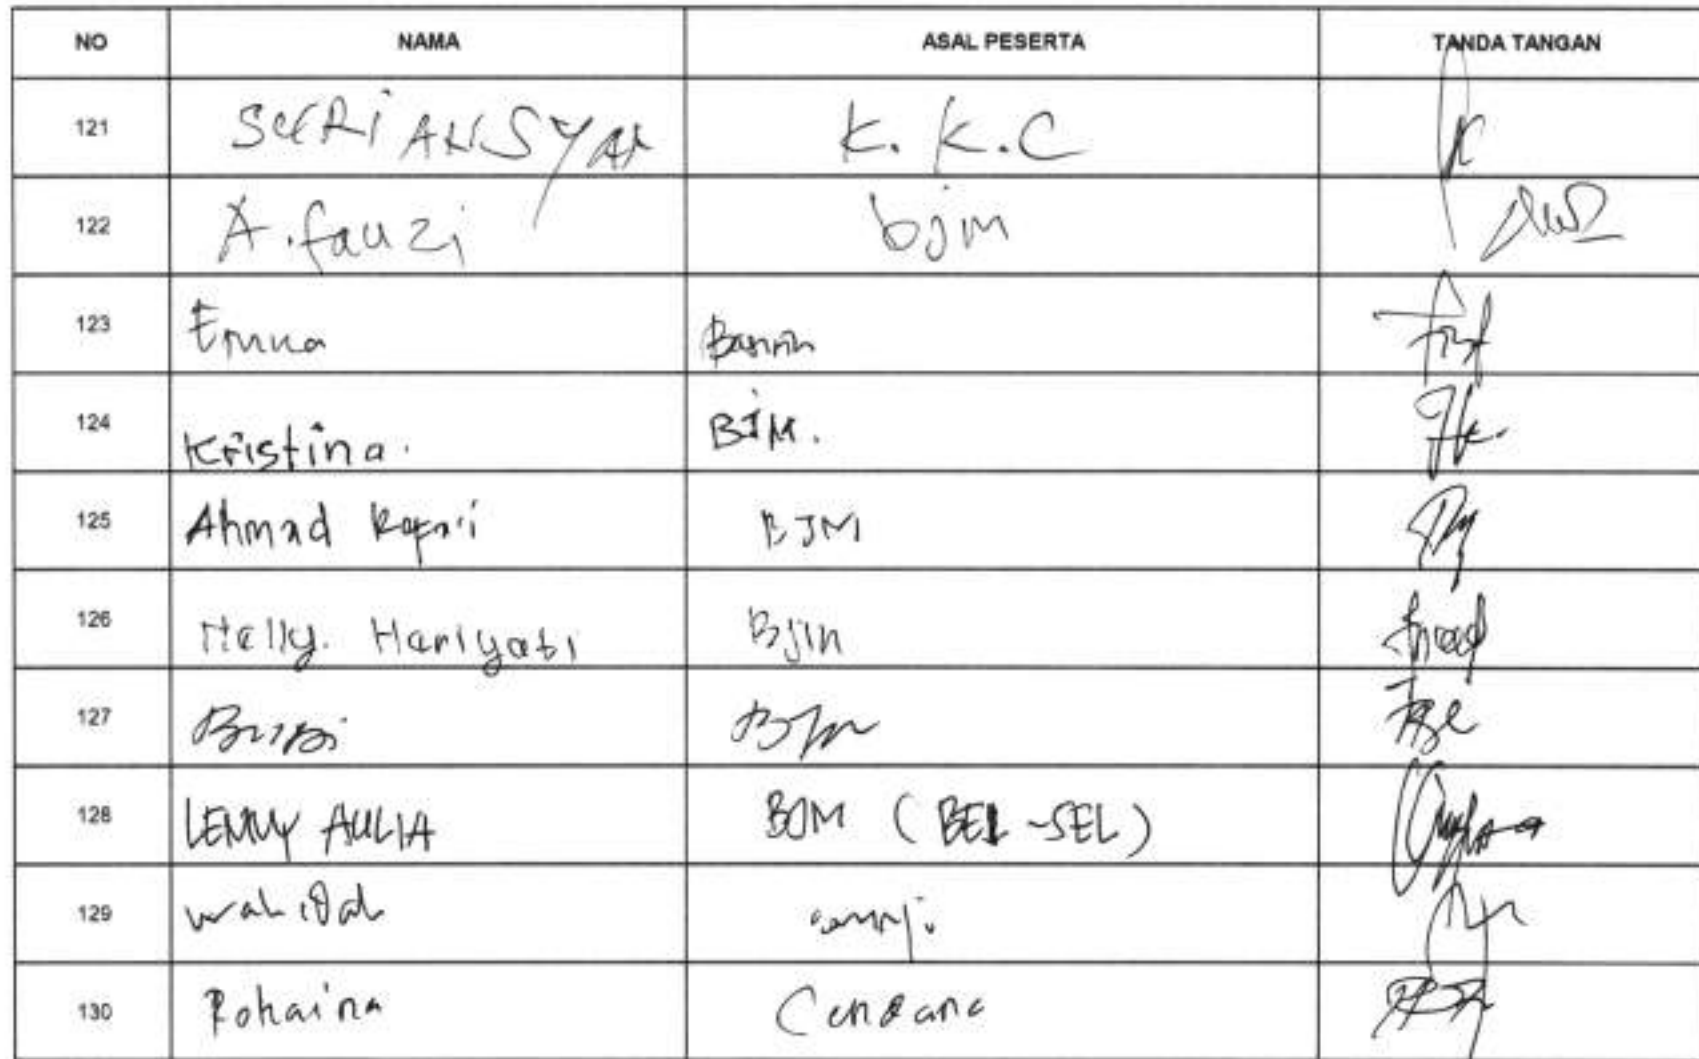 NO NAMA ASAL PESERTA TANDA TANGAN
121 SUERIANSYAH K.K.C
122 A.fauzi bjm
123 Erma
124 Kristina. BJM.
125 Ahmad BJM
126 Helly. Hariyati Bjm
127 Bjm
128 LENNY AULIA BJM (BEL-SEL)
129 wahidah
130 Rohaina Cendana